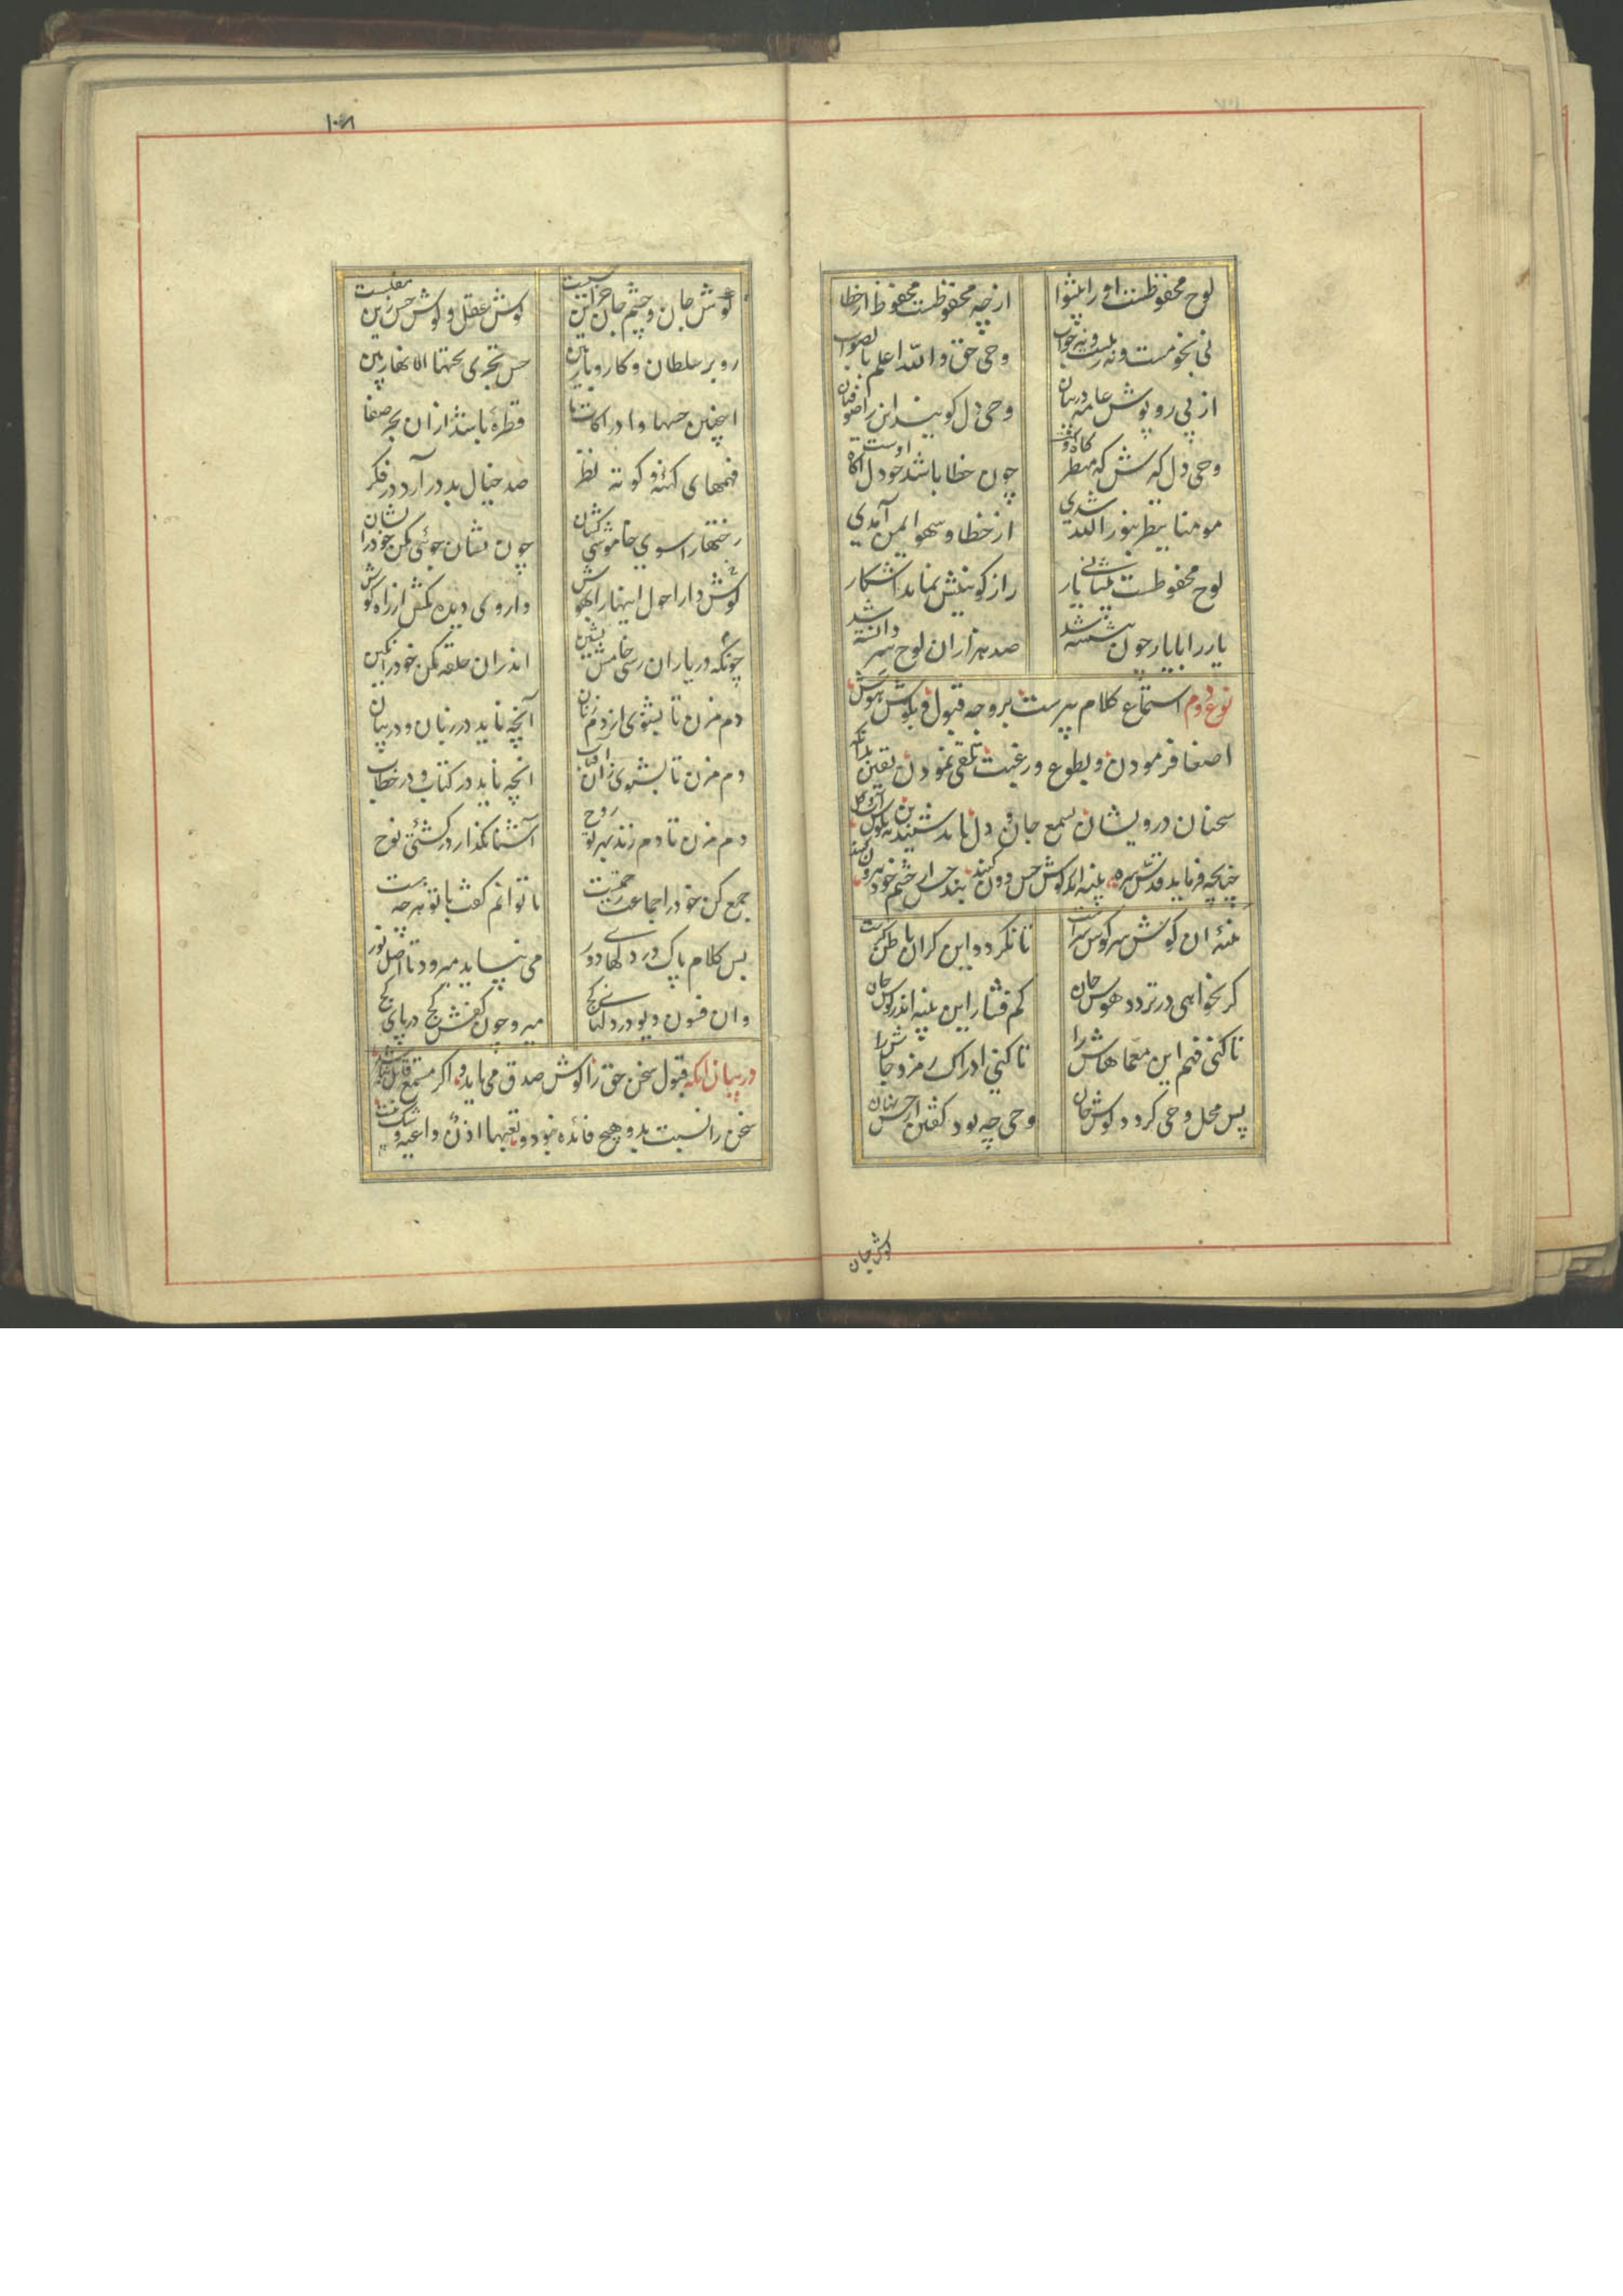 لوح محفوظست او را پیشوا
از چه محفوظست محفوظ از خطا
نی نجومست و نه رملست و نه خواب
وحی حق والله اعلم بالصواب
از پی روپوش عامه در بیان
وحی دل کویند این را صوفیان
وحی دل کیرش که منظرکاه اوست
چون خطا باشد چو دل آکاه اوست
مومنا ینظر بنور الله شدی
از خطا و سهو ایمن آمدی
لوح محفوظست پیشانی یار
راز کونینش نماید آشکار
یار را با یار چون بنشسته شد
صد هزاران لوح سر دانسته شد
نوع دوم استماع کلام پیرست بر وجه قبول و بکوش هوش
اصغا فرمودن و بطوع و رغبت تلقی نمودن یقین بدانکه
سخنان درویشان بسمع جان و دل باید شنید نه بکوش آب و کل
چنانچه فرماید قدس سره پنبه اندر کوش حس دون کنید بند حس از چشم خود بیرون کنید
پنبهٔ آن کوش سر کوش سرست
تا نکردد این کر آن باطن کرست
کر نخواهی در تردد هوش جان
کم فشار این پنبه اندر کوش جان
تا کنی فهم این معماهاش را
تا کنی ادراک رمز و فاش را
پس محل وحی کردد کوش جان
وحی چه بود کفتن از حس نهان
کوش جان
۱۰۸
کوش جان و چشم جان جز این حس است
کوش عقل و کوش حس زین مفلست
رو بر سلطان و کار و بار بین
حس تجری تحتها الانهار بین
اینچنین حسها و ادراکات ما
قطرهٔ باشد از ان بحر صفا
فهمهای کهنهٔ کوته نظر
صد خیال بد در آرد در فکر
رختها را سوی خاموشی کشان
چون نشان جوئی مکن خود را نشان
کوش دار احول اینها را بهوش
داروی دیده بکش از راه کوش
چونکه در یاران رسی خامش نشین
اندران حلقه مکن خود را نکین
دم مزن تا بشنوی از دم زنان
آنچه ناید در زبان و در بیان
دم مزن تا بشنوی زان آفتاب
آنچه ناید در کتاب و در خطاب
دم مزن تا دم زند بهر تو روح
آشنا بکذار در کشتی نوح
جمع کن خود را جماعت رحمتست
تا توانم کفت با تو هر چه هست
بس کلام پاک در دلهای دور
می نپاید میرود تا اصل نور
وان فسون دیو در دلهای کج
میرود چون کفش کج در پای کج
در بیان آنکه قبول سخن حق را کوش صدق می باید و اکر مستمع قابل نباشد
سخن را نسبت بدو هیچ فائده نبود و تعیها اذن واعیة